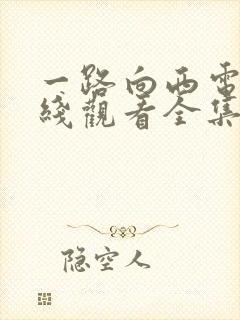 一路向西電
綫觀看全集
隐空人